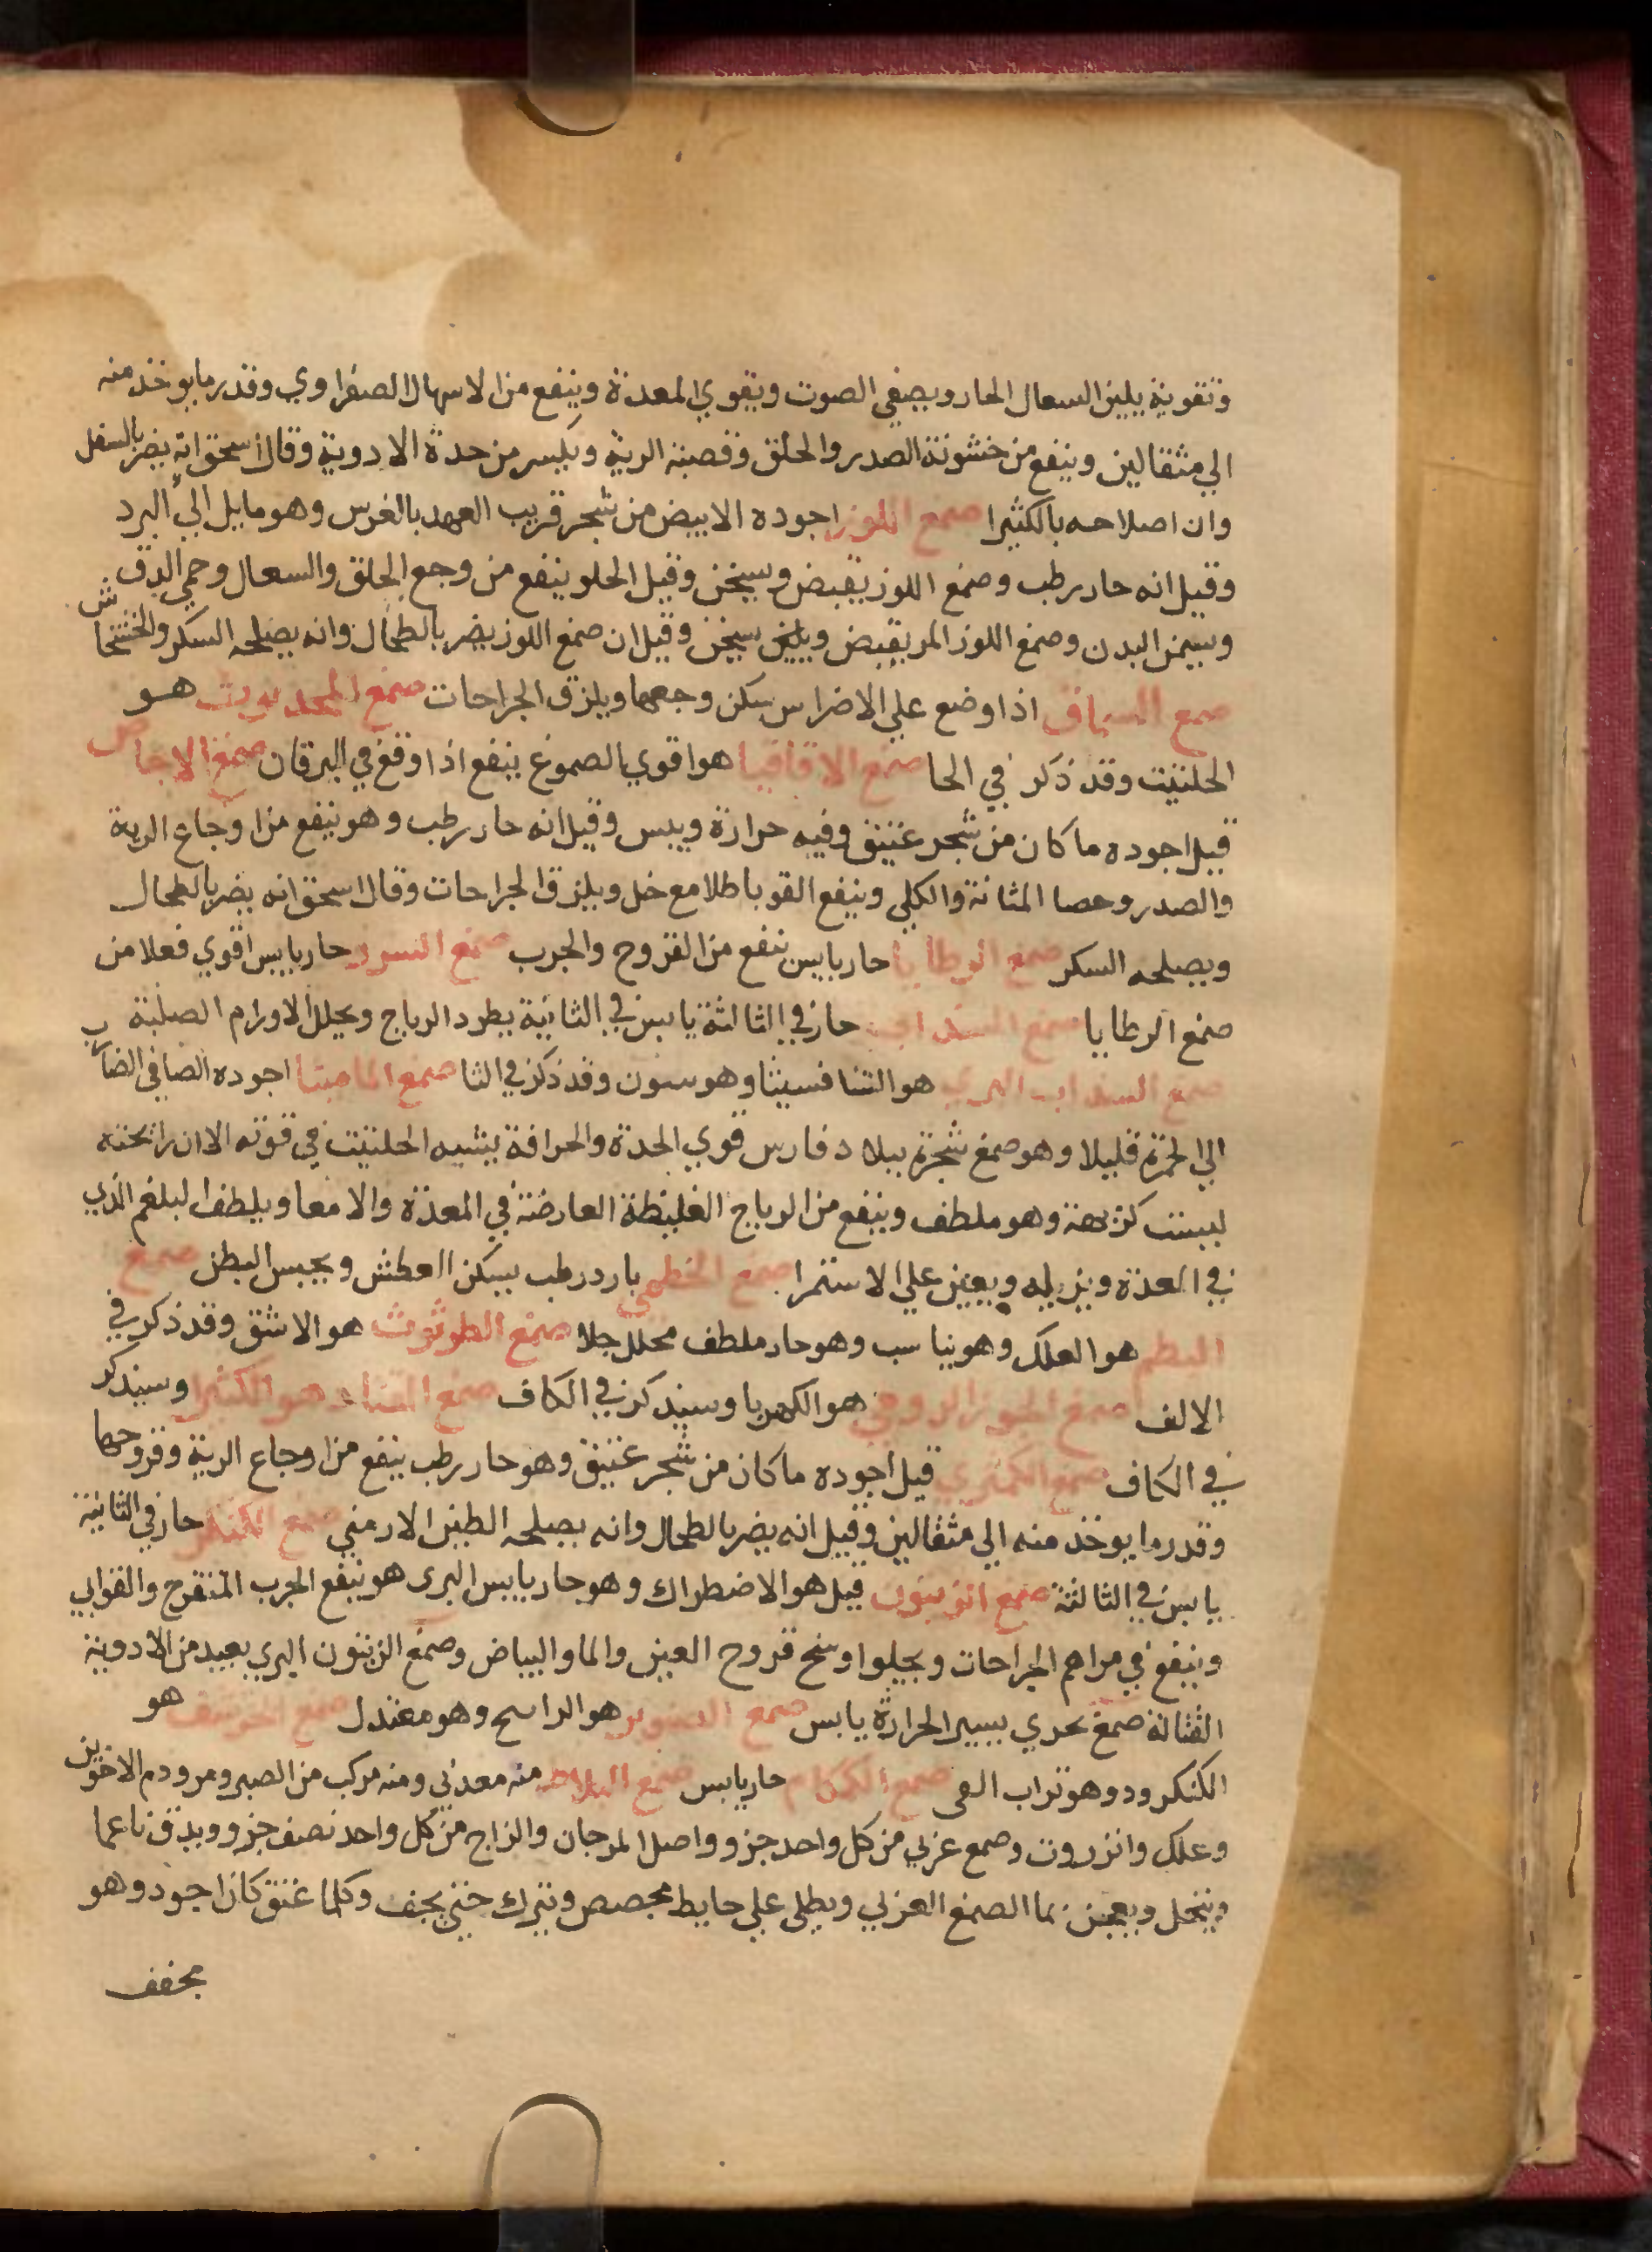 وتقويه يلين السعال الحار ويصفي الصوت ويقوي المعدة وينفع من الاسهال الصفراوي وقدر ما يوخذ منه
الي مثقالين وينفع من خشونة الصدر والحلق وقصبة الرية ويكسر من حدة الادوية وقال اسحق انه يضر بالسفل
وان اصلاحه بالكثيرا صمغ اللوز اجوده الابيض من شجر قريب العهد بالغرس وهو مايل الي البرد
وقيل انه حار رطب وصمغ اللوز يقبض ويسخن وقيل الحلو ينفع من وجع الحلق والسعال وحمي الدق
ويسمن البدن وصمغ اللوز المر يقبض ويلين يسخن وقيل ان صمغ اللوز يضر بالطحال وانه يصلحه السكر والخشخاش
صمغ السماق اذا وضع علي الاضراس سكن وجعها ويلزق الجراحات صمغ المحدوث هو
الحلتيت وقد ذكر في الحا صمغ الاقاقيا هو اقوي الصموغ ينفع اذا وقع في اليرقان صمغ الاجاص
قيل اجوده ما كان من شجر عتيق وفيه حرارة ويبس وقيل انه حار رطب وهو ينفع من اوجاع الرية
والصدر وحصا المثانة والكلي وينفع القوبا طلا مع خل ويلزق الجراحات وقال اسحق انه يضر بالطحال
ويصلحه السكر صمغ الرطايا حار يابس ينفع من القروح والجرب صمغ السرو حار يابس اقوي فعلا من
صمغ الرطايا صمغ السداب حار في الثالثة يابس في الثانية يطرد الرياح ويحلل الاورام الصلبة
صمغ السداب البري هو الثنافسيثا وهو سنون وقد ذكر في الثا صمغ الماميثا اجوده الصافي الضارب
الي الحمرة قليلا وهو صمغ شجرة ببلاد فارس قوي الحدة والحرافة يشبه الحلتيت في قوته الا ان رائحته
ليست كريهة وهو ملطف وينفع من الرياح الغليظة العارضة في المعدة والامعا ويلطف البلغم الذي
في المعدة ويزيله ويعين علي الاستمرا صمغ الخطمي بارد رطب يسكن العطش ويحبس البطن صمغ
البطم هو العلك وهو يناسب وهو حار ملطف محلل جلا صمغ الطرثوث هو الاشق وقد ذكر في
الالف صمغ الجوز الرومي هو الكهربا وسيذكر في الكاف صمغ القتاد هو الكثيرا وسيذكر
في الكاف صمغ الكمثري قيل اجوده ما كان من شجر عتيق وهو حار رطب ينفع من اوجاع الرية وقروحها
وقدر ما يوخذ منه الي مثقالين وقيل انه يضر بالطحال وانه يصلحه الطين الارمني صمغ الكنكر حار في الثانية
يابس في الثالثة صمغ الزيتون قيل هو الاضطراك وهو حار يابس البرى هو ينفع الجرب المتقرح والقوابي
وينفع في مراهم الجراحات ويجلوا وسخ قروح العين والما والبياض وصمغ الزيتون البري يعيد من الادوية
القتالة صمغ بحري يسير الحرارة يابس صمغ الصنوبر هو الراسح وهو معتدل صمغ الخرشف هو
الكنكرود وهو تراب القي صمغ الكمكام حار يابس صمغ البلاط منه معدني ومنه مركب من الصبر ومر ودم الاخوين
وعلك وانزروت وصمغ عربي من كل واحد جزو واصل المرجان والزاج من كل واحد نصف جزو ويدق ناعما
وينخل ويعجن بما الصمغ العربي ويطلى علي حايط مجصص ويترك حتي يجف وكلما عتق كان اجود وهو
مجفف